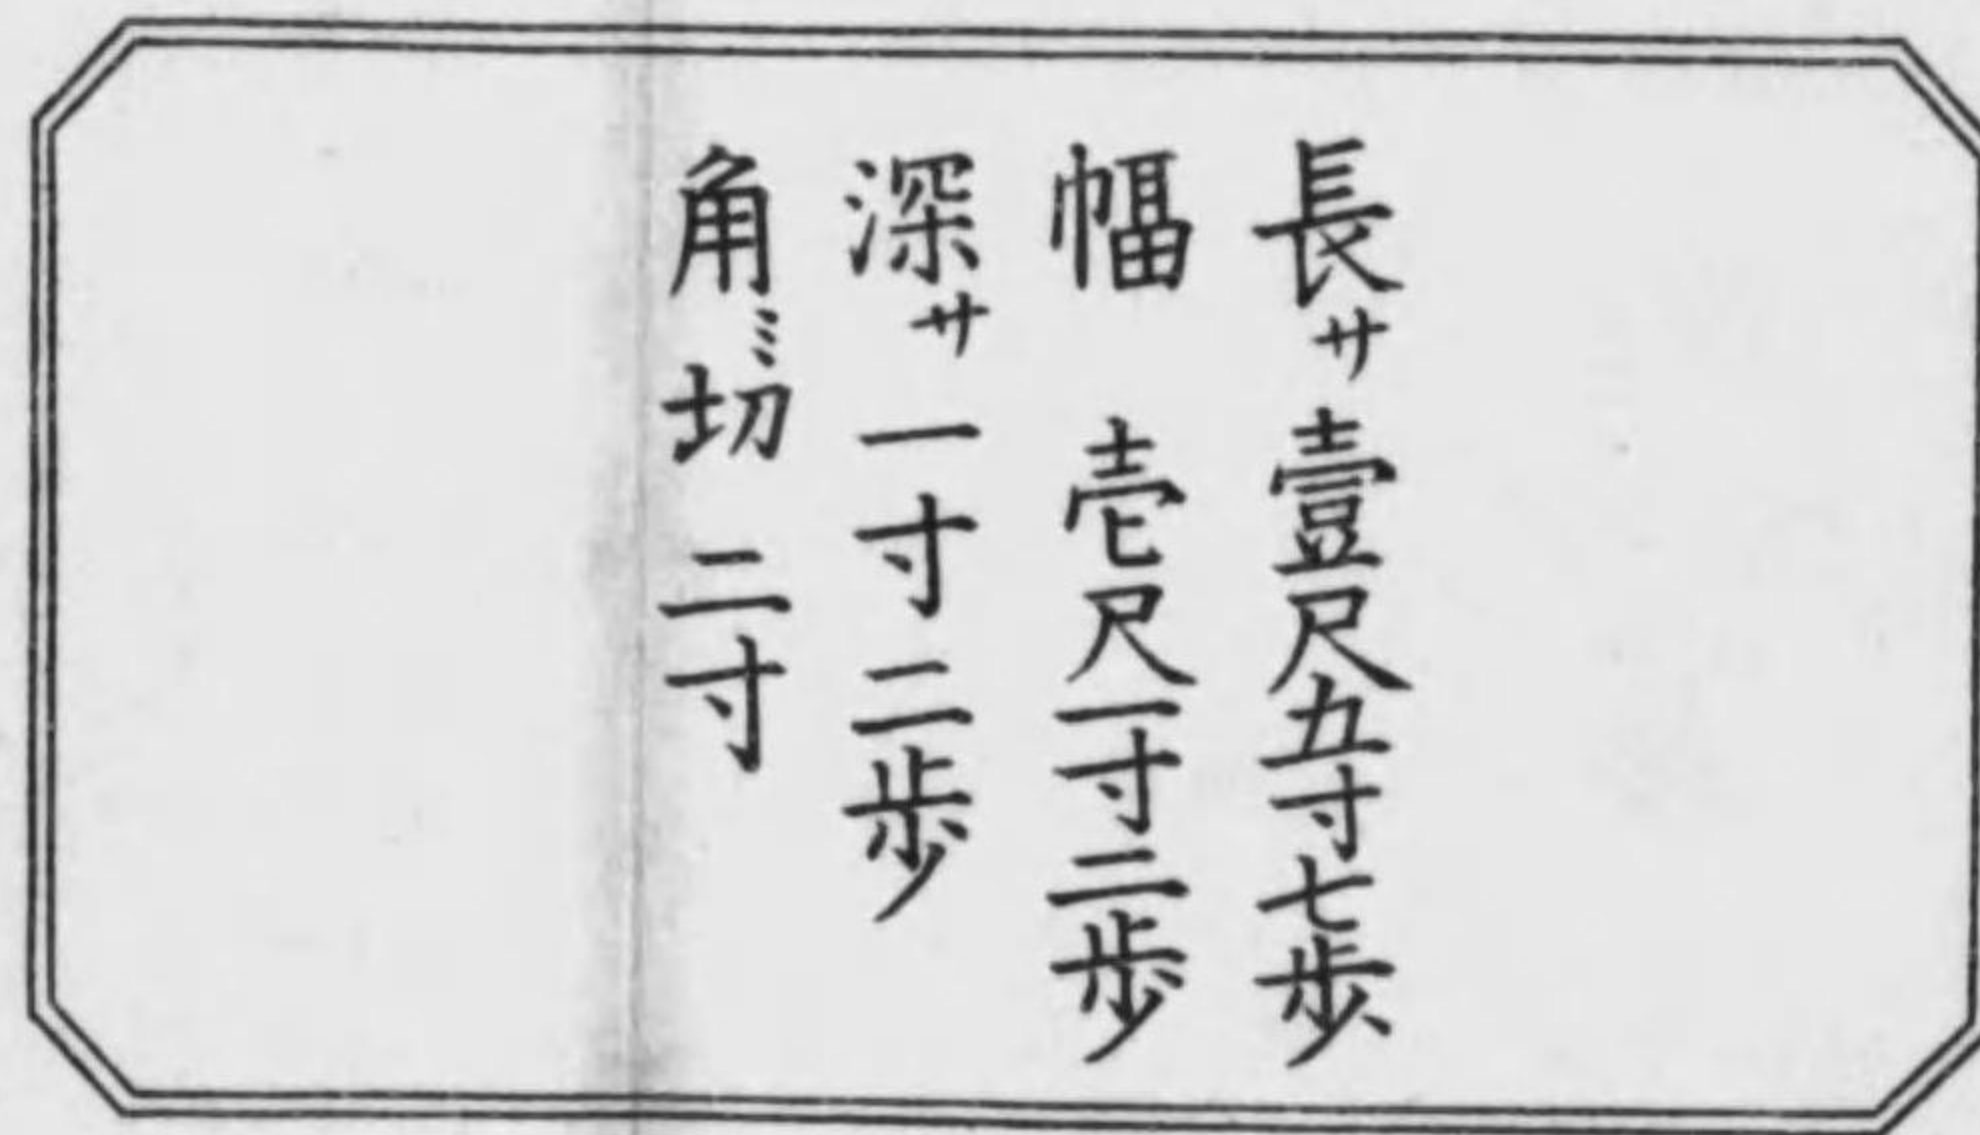 長サ壹尺五寸七歩
幅 壱尺一寸二歩
深サ一寸二歩
角ミ切 二寸